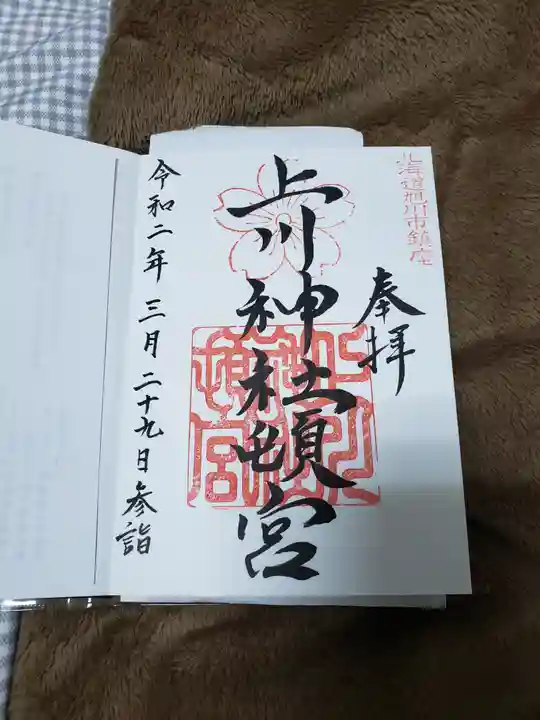 北海道旭川市鎮座
奉拝
上川神社頓宮
令和二年三月二十九日参詣